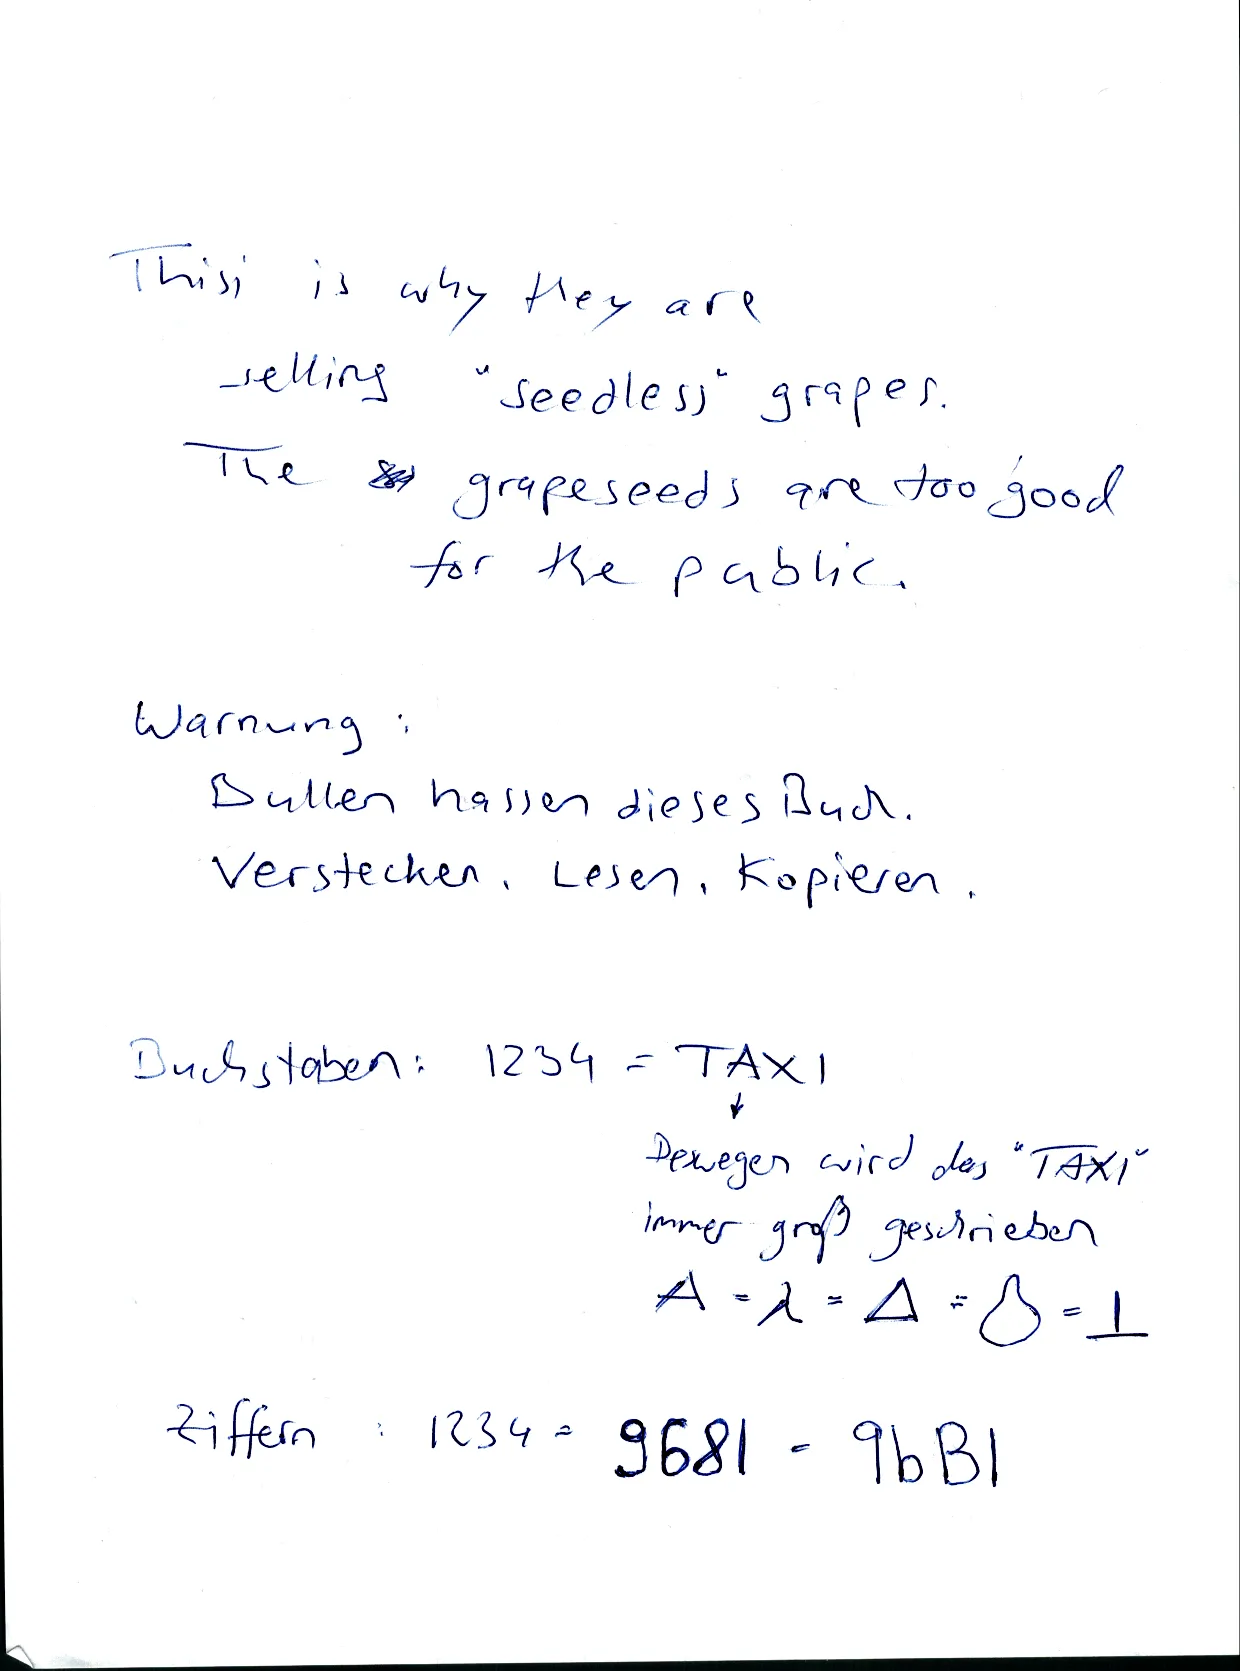 Thisi is why they are
selling "seedless" grapes.
The grapeseeds are too good
for the public.
Warnung:
Bullen hassen dieses Buch.
Verstecken. Lesen. Kopieren.
Buchstaben: 1234 = TAXI
↓
Deswegen wird das "TAXI"
immer groß geschrieben
A = λ = Δ = = ⊥
Ziffern : 1234 = 9681 = 9bB1